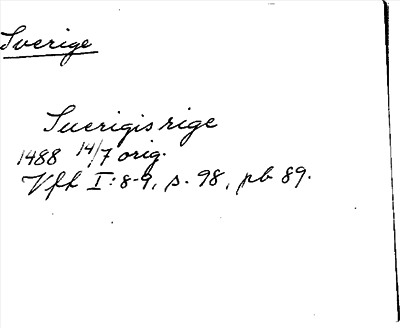 Sverige
Suerigis rige
1488 14/7 orig.
Vfh I:8-9, s. 98, pb 89.